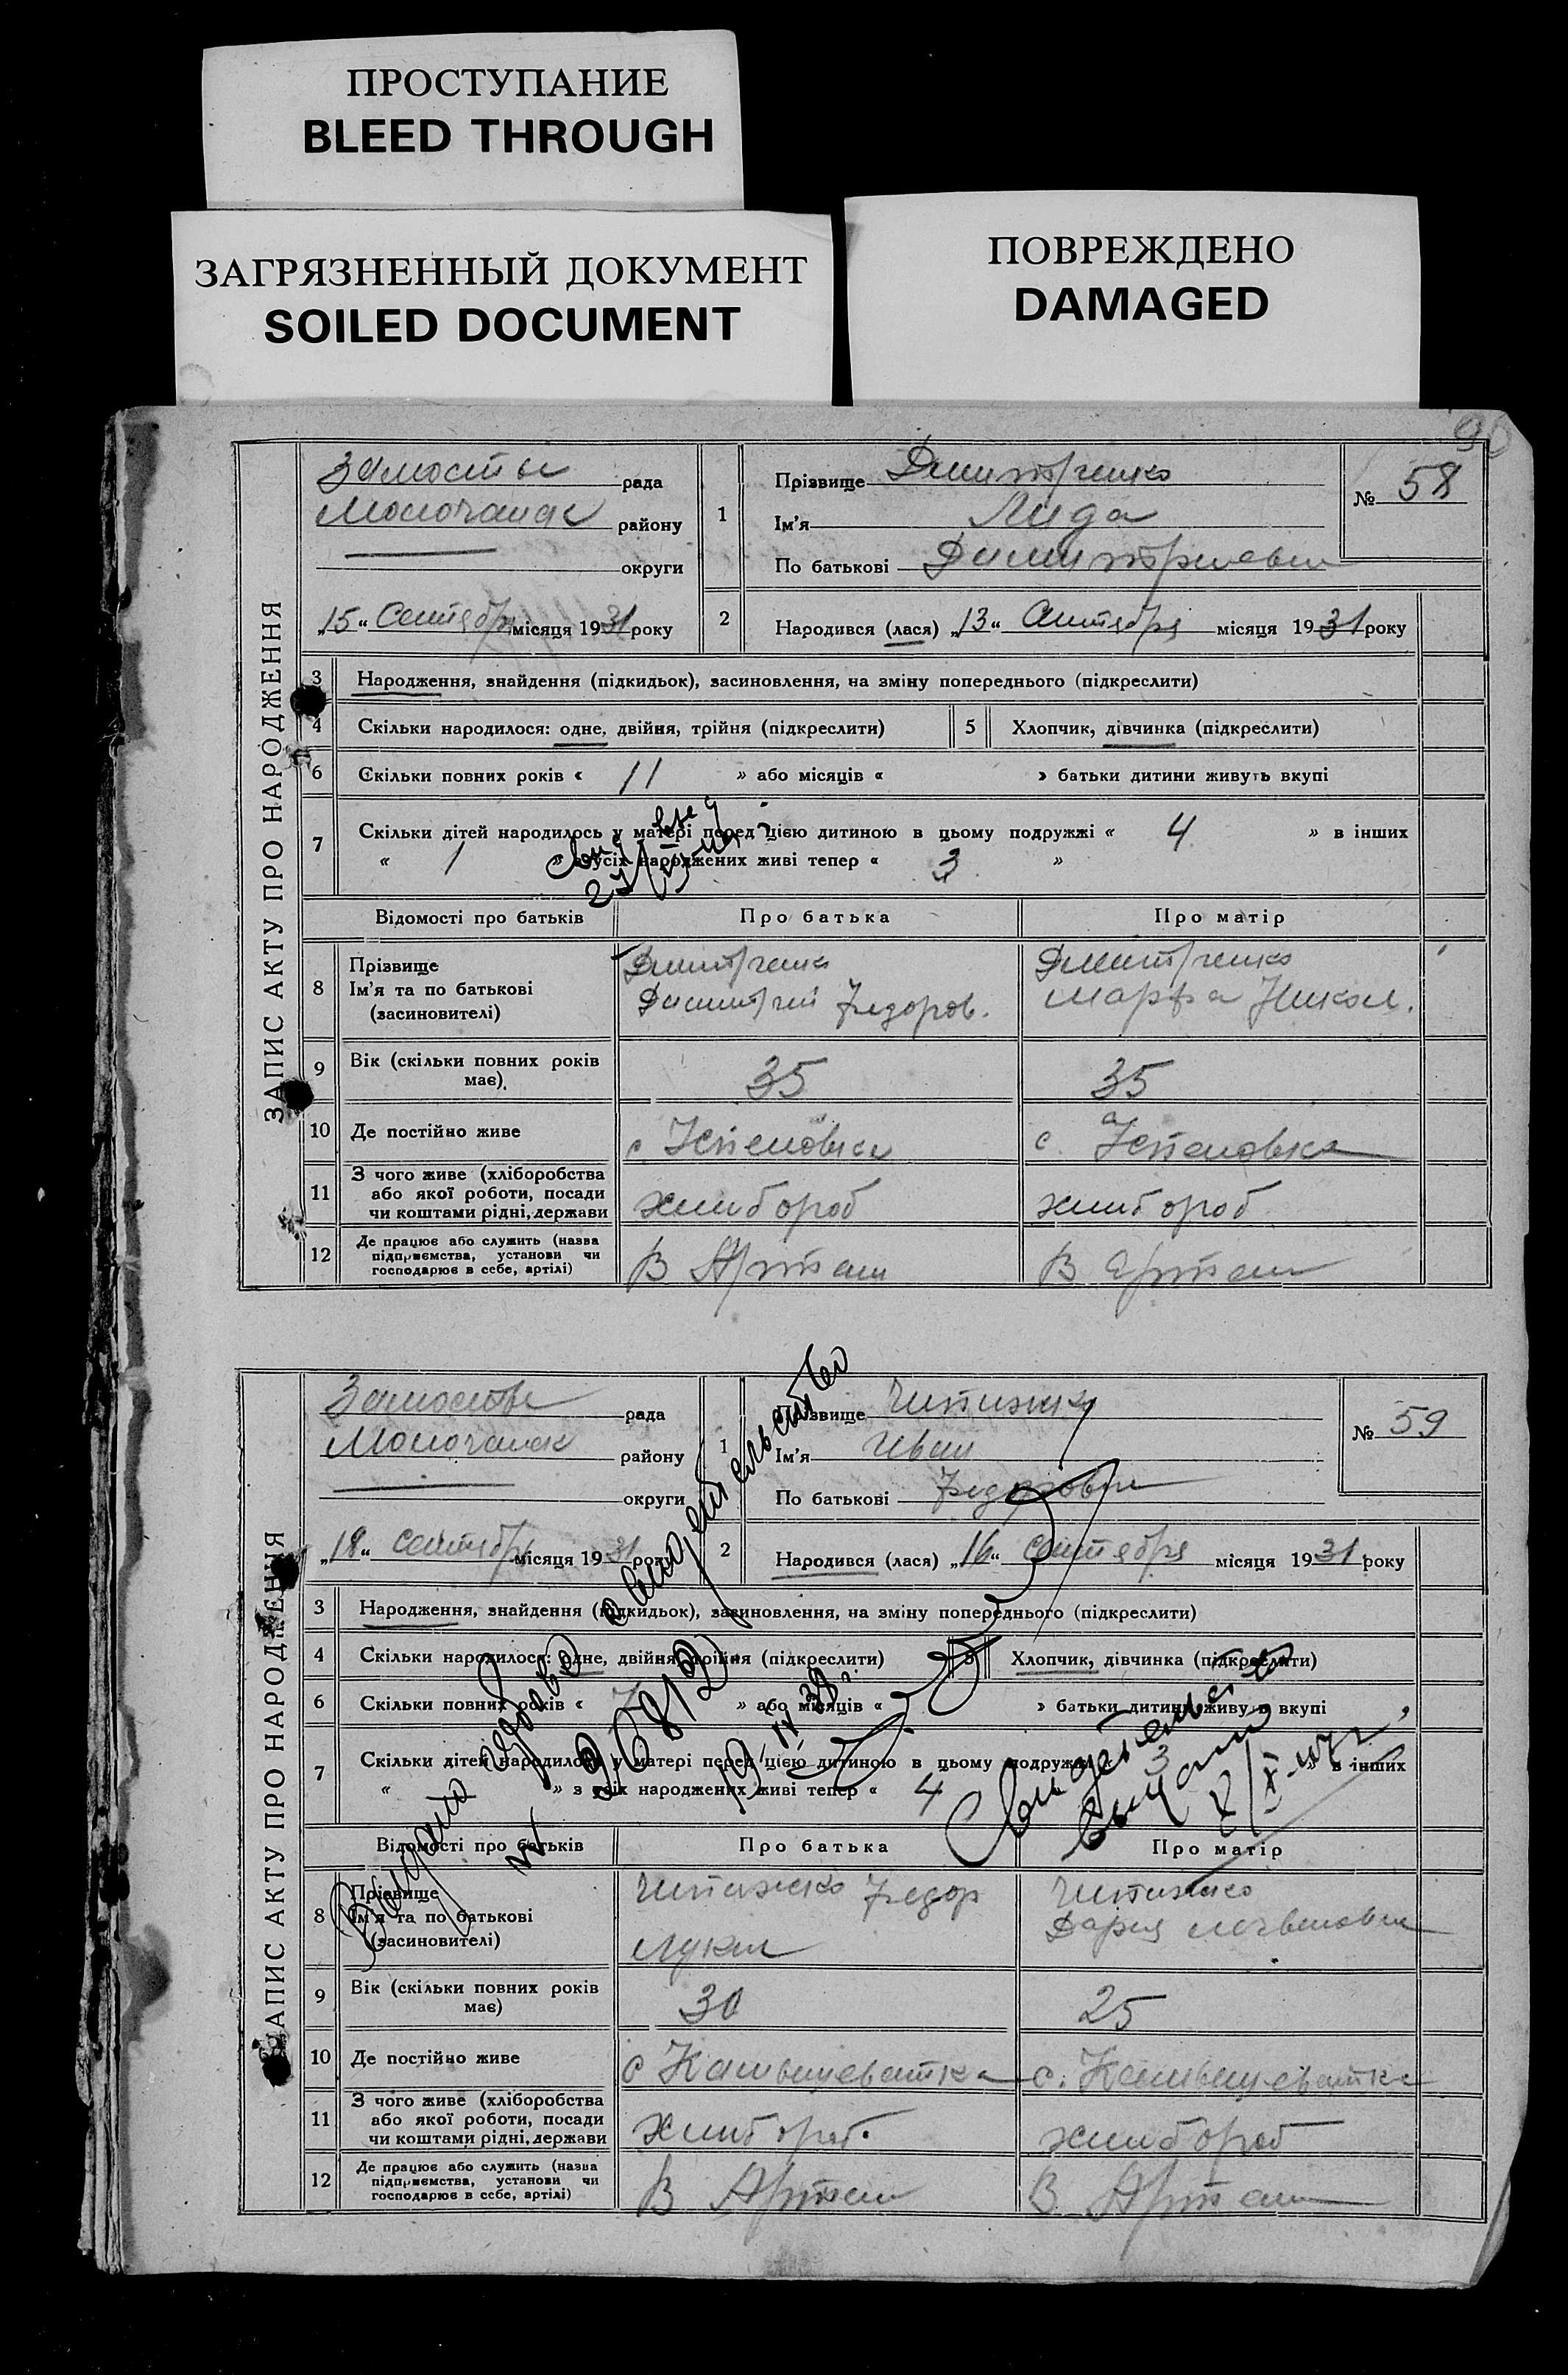 ПРОСТУПАНИЕ
BLEED THROUGH
ЗАГРЯЗНЕННЫЙ ДОКУМЕНТ
SOILED DOCUMENT
ПОВРЕЖДЕНО
DAMAGED
90
ЗАПИС АКТУ ПРО НАРОДЖЕННЯ
рада
району
округи
„15“ Сентября місяця 1931 року
1
Прізвище Дмитрченко
Ім'я Лида
По батькові
№ 58
2 Народився (лася) „13“ Сентября місяця 1931 року
3 Народження, знайдення (підкидьок), засиновлення, на зміну попереднього (підкреслити)
4 Скільки народилося: одне, двійня, трійня (підкреслити) 5 Хлопчик, дівчинка (підкреслити)
6 Скільки повних років « 11 » або місяців « » батьки дитини живуть вкупі
7 Скільки дітей народилось у матері перед цією дитиною в цьому подружжі « 4 » в інших
« 1 » з усіх народжених живі тепер « 3 »
Відомості про батьків Про батька Про матір
8 Прізвище
Ім'я та по батькові
(засиновителі)
Дмитрченко
Федоров.
Дмитрченко
Марфа Никол.
9 Вік (скільки повних років має) 35 35
10 Де постійно живе с. с.
11 З чого живе (хліборобства
або якої роботи, посади
чи коштами рідні, держави
хлибороб хлибороб
12 Де працює або служить (назва
підприємства, установи чи
господарює в себе, артілі)
В Артели В Артели
ЗАПИС АКТУ ПРО НАРОДЖЕННЯ
рада
району
округи
„18“ сентября місяця 1931 року
1
Прізвище
Ім'я Иван
По батькові Федорович
№ 59
2 Народився (лася) „16“ сентября місяця 1931 року
3 Народження, знайдення (підкидьок), засиновлення, на зміну попереднього (підкреслити)
4 Скільки народилося: одне, двійня, трійня (підкреслити) 5 Хлопчик, дівчинка (підкреслити)
6 Скільки повних років « 7 » або місяців « » батьки дитини живуть вкупі
7 Скільки дітей народилось у матері перед цією дитиною в цьому подружжі « 3 » в інших
« » з усіх народжених живі тепер « 4
Видано свидетельство
Свидетельство
выдано
Відомості про батьків Про батька Про матір
8 Прізвище
Ім'я та по батькові
(засиновителі)
Федор
Дария
9 Вік (скільки повних років має) 30 25
10 Де постійно живе с Камышеватка с. Камышеватка
11 З чого живе (хліборобства
або якої роботи, посади
чи коштами рідні, держави
хлибороб. хлибороб
12 Де працює або служить (назва
підприємства, установи чи
господарює в себе, артілі)
В Артели В Артели